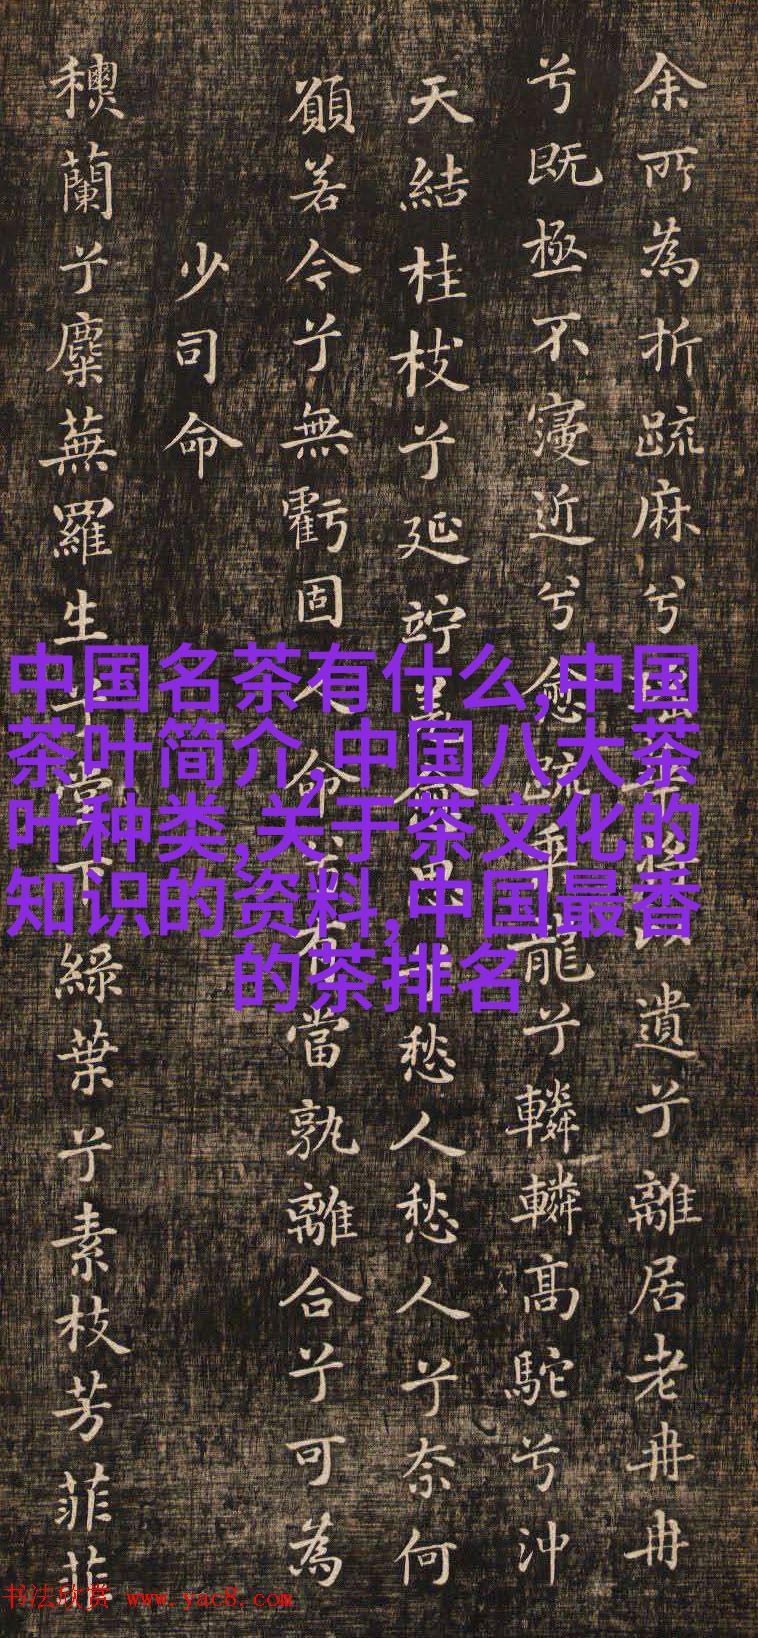 余所為折疏麻兮遺兮離居老冉冉
兮既極不寖近兮愈疏乗龍兮轔轔高駝兮沖
天結桂枝兮延竚羌愈思兮愁人愁人兮奈何
願若今兮無虧固人命兮有當孰離合兮可為
少司命
蘭兮麋蕪羅生兮堂下綠葉兮素枝芳菲菲
中国名茶有什么,中国
茶叶简介,中国八大茶
叶种类,关于茶文化的
知识的资料,中国最香
的茶排名
书法欣赏 www.yac8.com